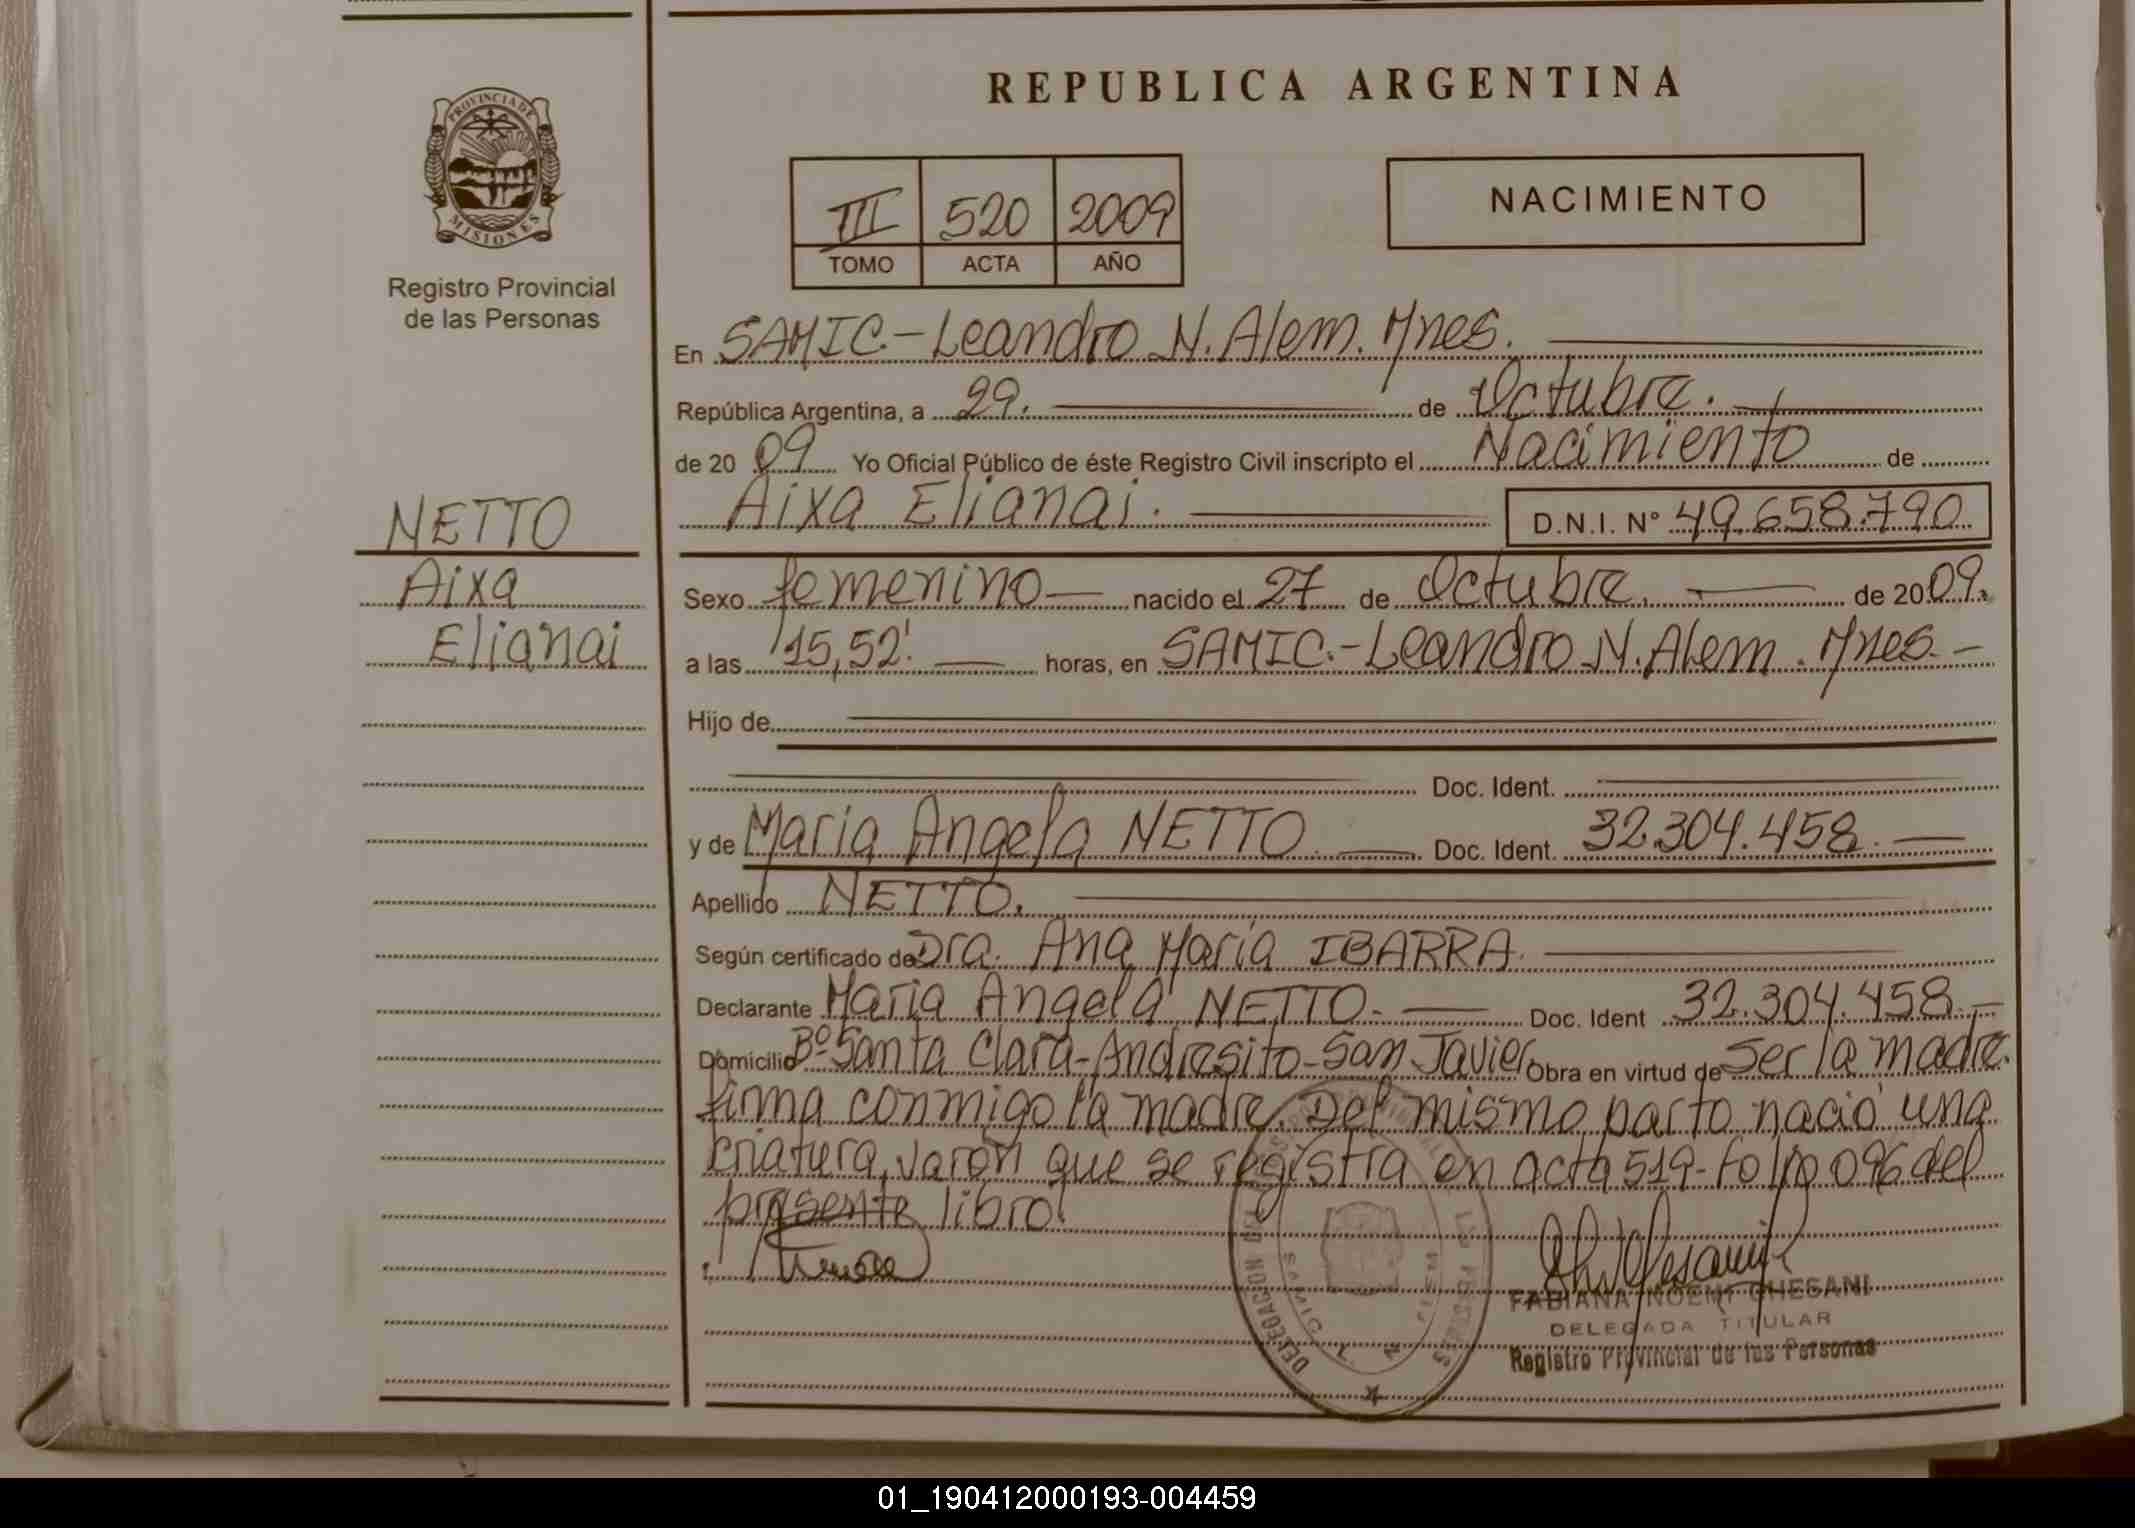 REPUBLICA ARGENTINA
PROVINCIA DE
MISIONES
Registro Provincial
de las Personas
III 520 2009
TOMO ACTA AÑO
NACIMIENTO
En SAMIC.-Leandro N. Alem. Mnes.
República Argentina, a 29. de Octubre.
de 20 09 Yo Oficial Público de éste Registro Civil inscripto el Nacimiento de
Aixa Elianai. D.N.I. N° 49.658.790
NETTO
Aixa
Elianai
Sexo femenino nacido el 27 de Octubre. de 20 09.
a las 15,52' horas, en SAMIC.-Leandro N. Alem. Mnes.-
Hijo de
Doc. Ident.
y de Maria Angela NETTO. Doc. Ident. 32.304.458.
Apellido NETTO.
Según certificado de Dra. Ana María IBARRA.
Declarante Maria Angela NETTO.- Doc. Ident 32.304.458.-
Domicilio Bº Santa Clara-Andresito-San Javier Obra en virtud de ser la madre.
firma conmigo la madre. Del mismo parto nació una
criatura, varón que se registra en acta 519-folio 096 del
presente libro.
DELEGACION
SAMIC L. N.
FABIANA NOEMI GHESANI
DELEGADA TITULAR
Registro Provincial de las Personas
01_190412000193-004459